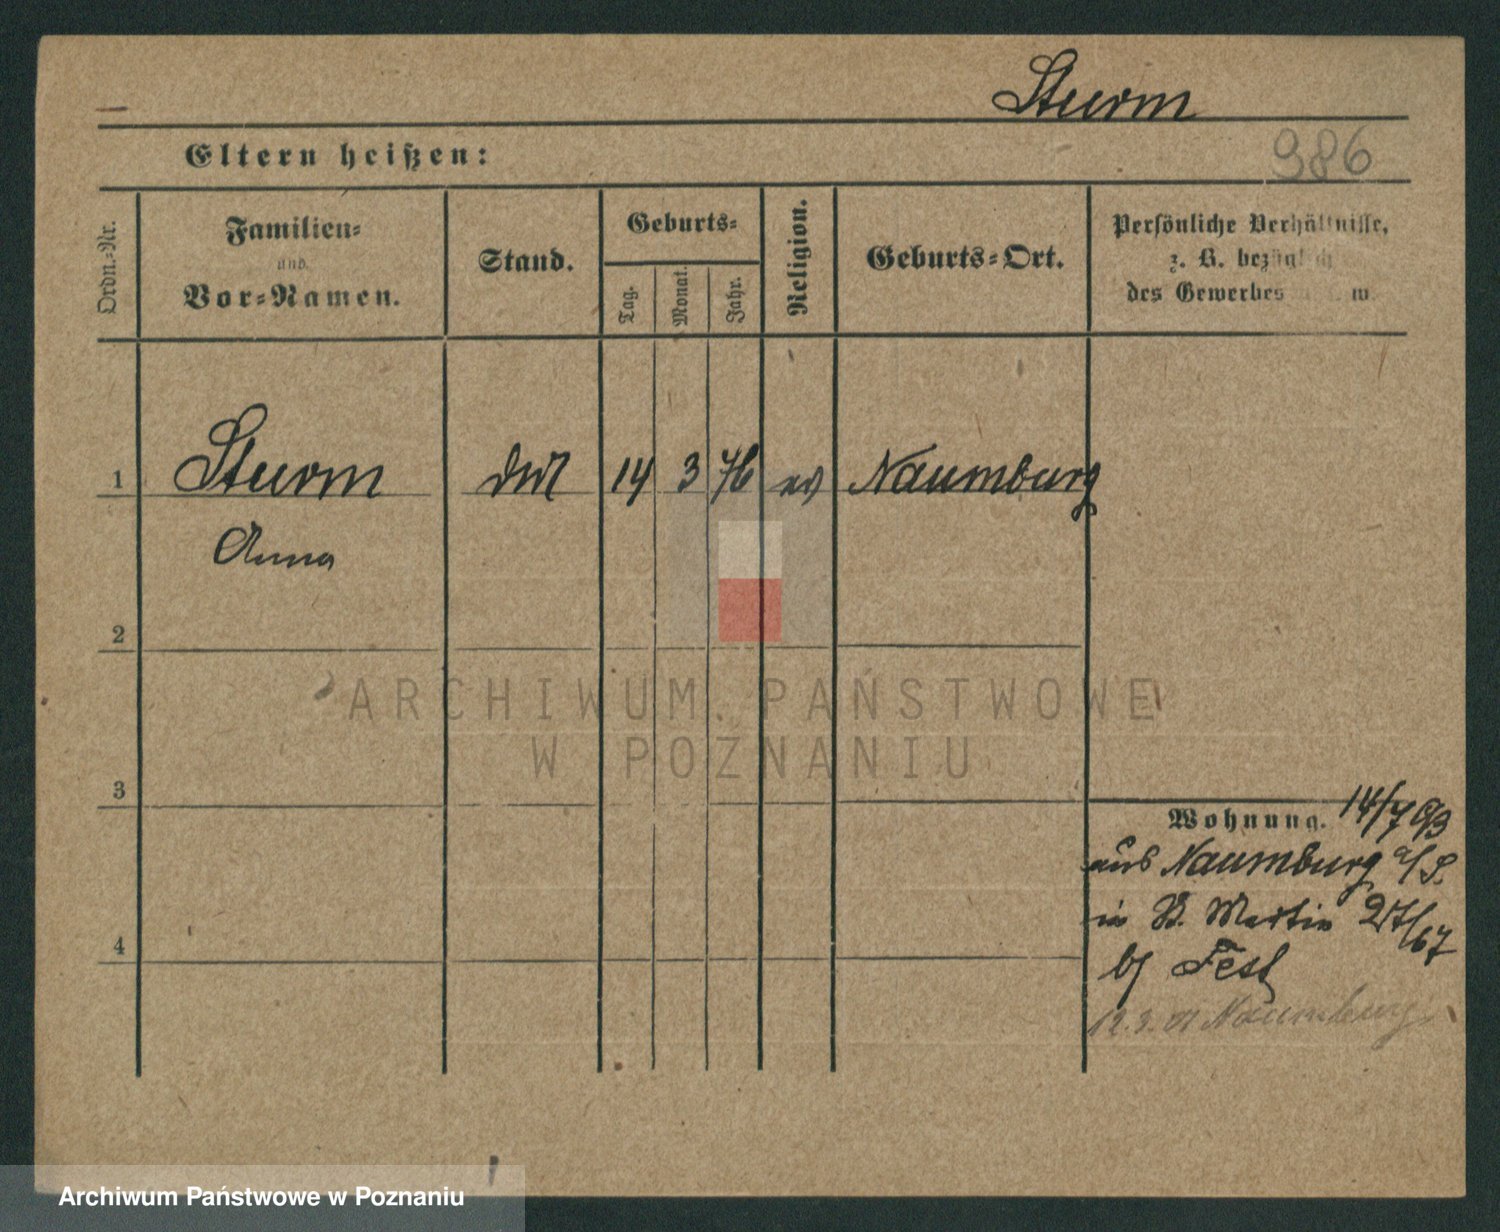 Sturm
986
Eltern heißen:
Ordn.-Nr.
Familien-
und
Vor-Namen.
Stand.
Geburts-
Tag.
Monat.
Jahr.
Religion.
Geburts-Ort.
Persönliche Verhältnisse,
z. B. bezüglich
des Gewerbes u. s. w.
1 Sturm 14 3 76 ev Naumburg
Anna
2
ARCHIWUM PAŃSTWOWE
W POZNANIU
3
Wohnung. 14/7 93
aus Naumburg a/S.
in St. Martin 27/67
bj Fest
12.3. 01 Naumburg
4
Archiwum Państwowe w Poznaniu